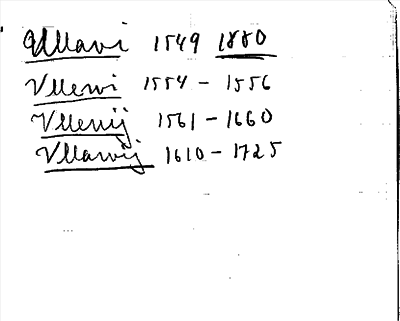 Ullavi 1549 1880
Vllewi 1554 - 1556
Vllewij 1561 - 1660
Vllawij 1610 - 1725